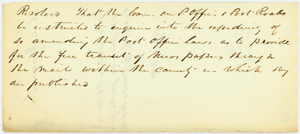 Resolved That the Com. on P Offices & Post Roads
be instructed to enquire into the expediency of
so amending the Post Office Laws as to provide
for the free transit of News papers through
the mail within the County in which they
are published